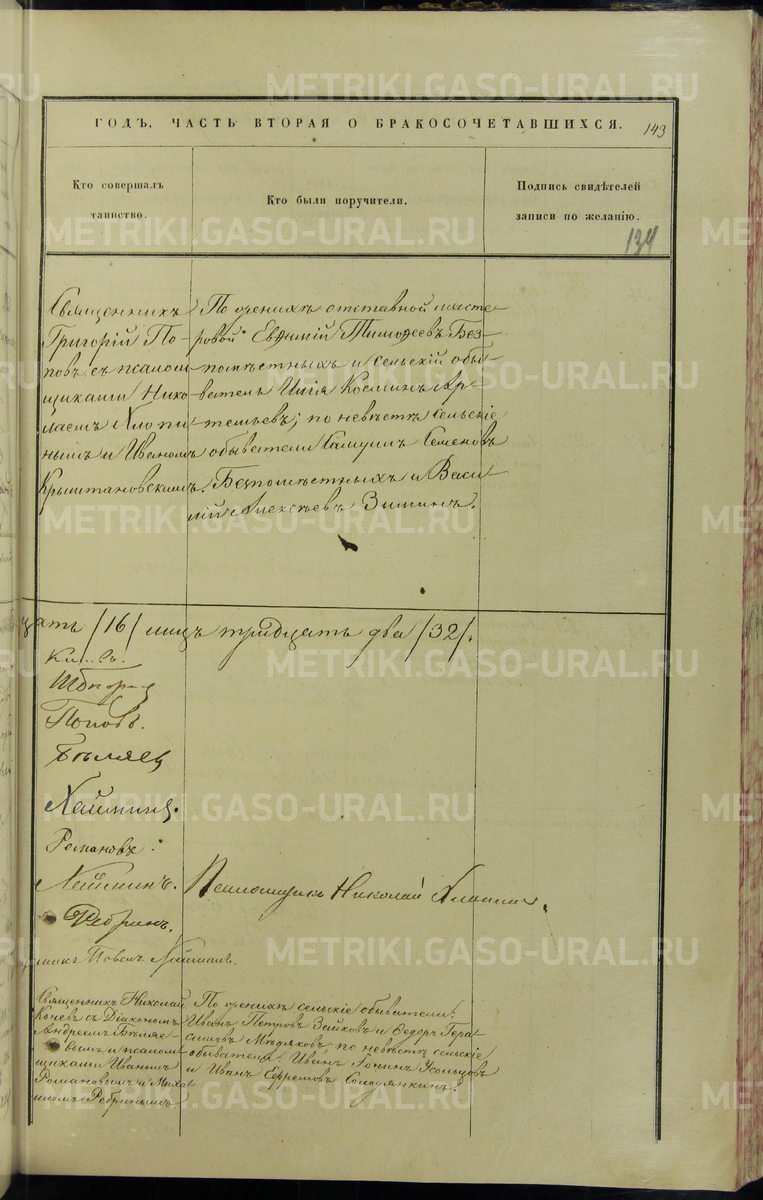 METRIKI.GASO-URAL.RU
ГОДЪ, ЧАСТЬ ВТОРАЯ О БРАКОСОЧЕТАВШИХСЯ.
143
Кто совершалъ
таинство.
Кто были поручители.
Подпись свидѣтелей
записи по желанію.
134
Священникъ
Григорій По-
повъ съ псалом-
щиками Нико-
лаемъ Хлопи-
нымъ и Иваномъ
Крыштановскимъ.
По женихѣ отставной масте-
ровой Евѳимій Тимоѳеевъ Без-
помѣстныхъ и сельскій обы-
ватель Илія Косминъ Ар-
темьевъ; по невѣстѣ сельскіе
обыватели Самуилъ Семеновъ
Безпомѣстныхъ и Васи-
лій Алексѣевъ Зиминъ.
цать /16/ лицъ тридцать два /32/.
Поповъ.
Бѣляев
Романовъ
Ребринъ.
Псаломщикъ Николай Хлопинъ.
Павелъ
Священникъ Николай
съ Діакономъ
Андреемъ Бѣляе-
вымъ и псалом-
щиками Иваномъ
Романовымъ и Миха-
иломъ Ребринымъ.
По женихѣ сельскіе обыватели:
Иванъ Петровъ Зайковъ и Ѳедоръ Гера-
симовъ Мѣдяковъ; по невѣстѣ сельскіе
обыватели: Иванъ Усольцовъ
и Иванъ Ефремовъ Солодянкинъ.